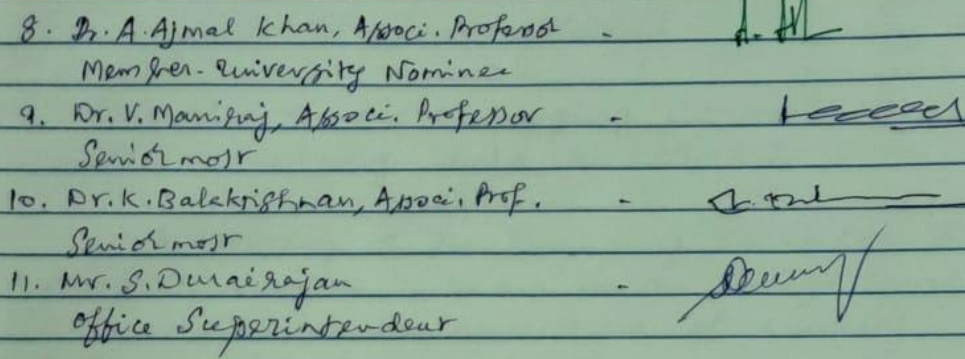 8. Dr. A. Ajmal Khan, Associ. Professor -
Member - University Nominee
9. Dr. V. Maniraj, Associ. Professor -
Senior most
10. Dr. K. Balakrishnan, Associ. Prof. -
Senior most
11. Mr. S. Durairajan -
Office Superintendent